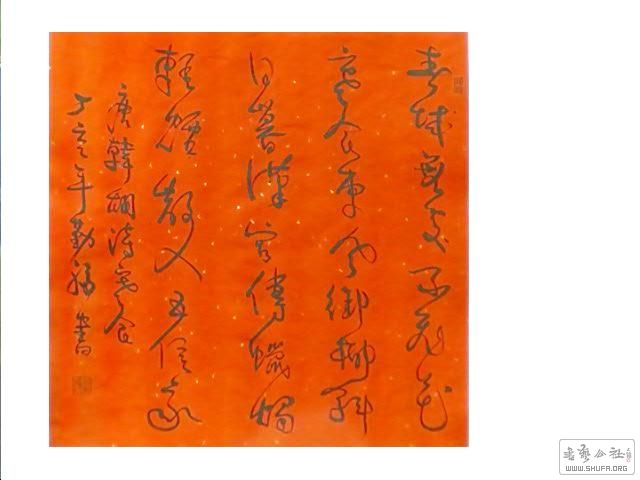 春城無處不飛花
寒食東風御柳斜
日暮漢宮傳蠟燭
輕煙散入五侯家
唐韓翃詩寒食
丁亥年勤福書
書藝公社
WWW.SHUFA.ORG